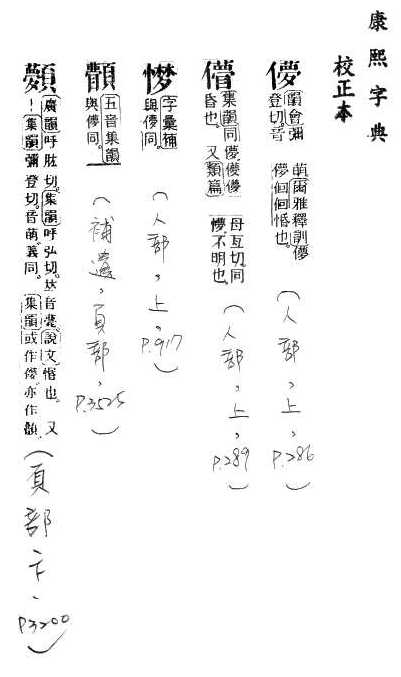 康熙字典
校正本
儚 韻會彌登切。音
萌。爾雅釋訓儚儚佪佪惛也。
(人部,上,P.286)
集韻同儚。昏也。又類篇
母亙切。同懜。不明也。
(人部,上,P.289)
字彙補與儚同。
(人部,上,P.917)
五音集韻與儚同。
(補遺,頁部,P.3525)
廣韻呼肱切。集韻呼弘切。𠀤音薨。說文惛也。又
集韻彌登切。音萌。義同。集韻或作儚。亦作
(頁部,下,P3200)